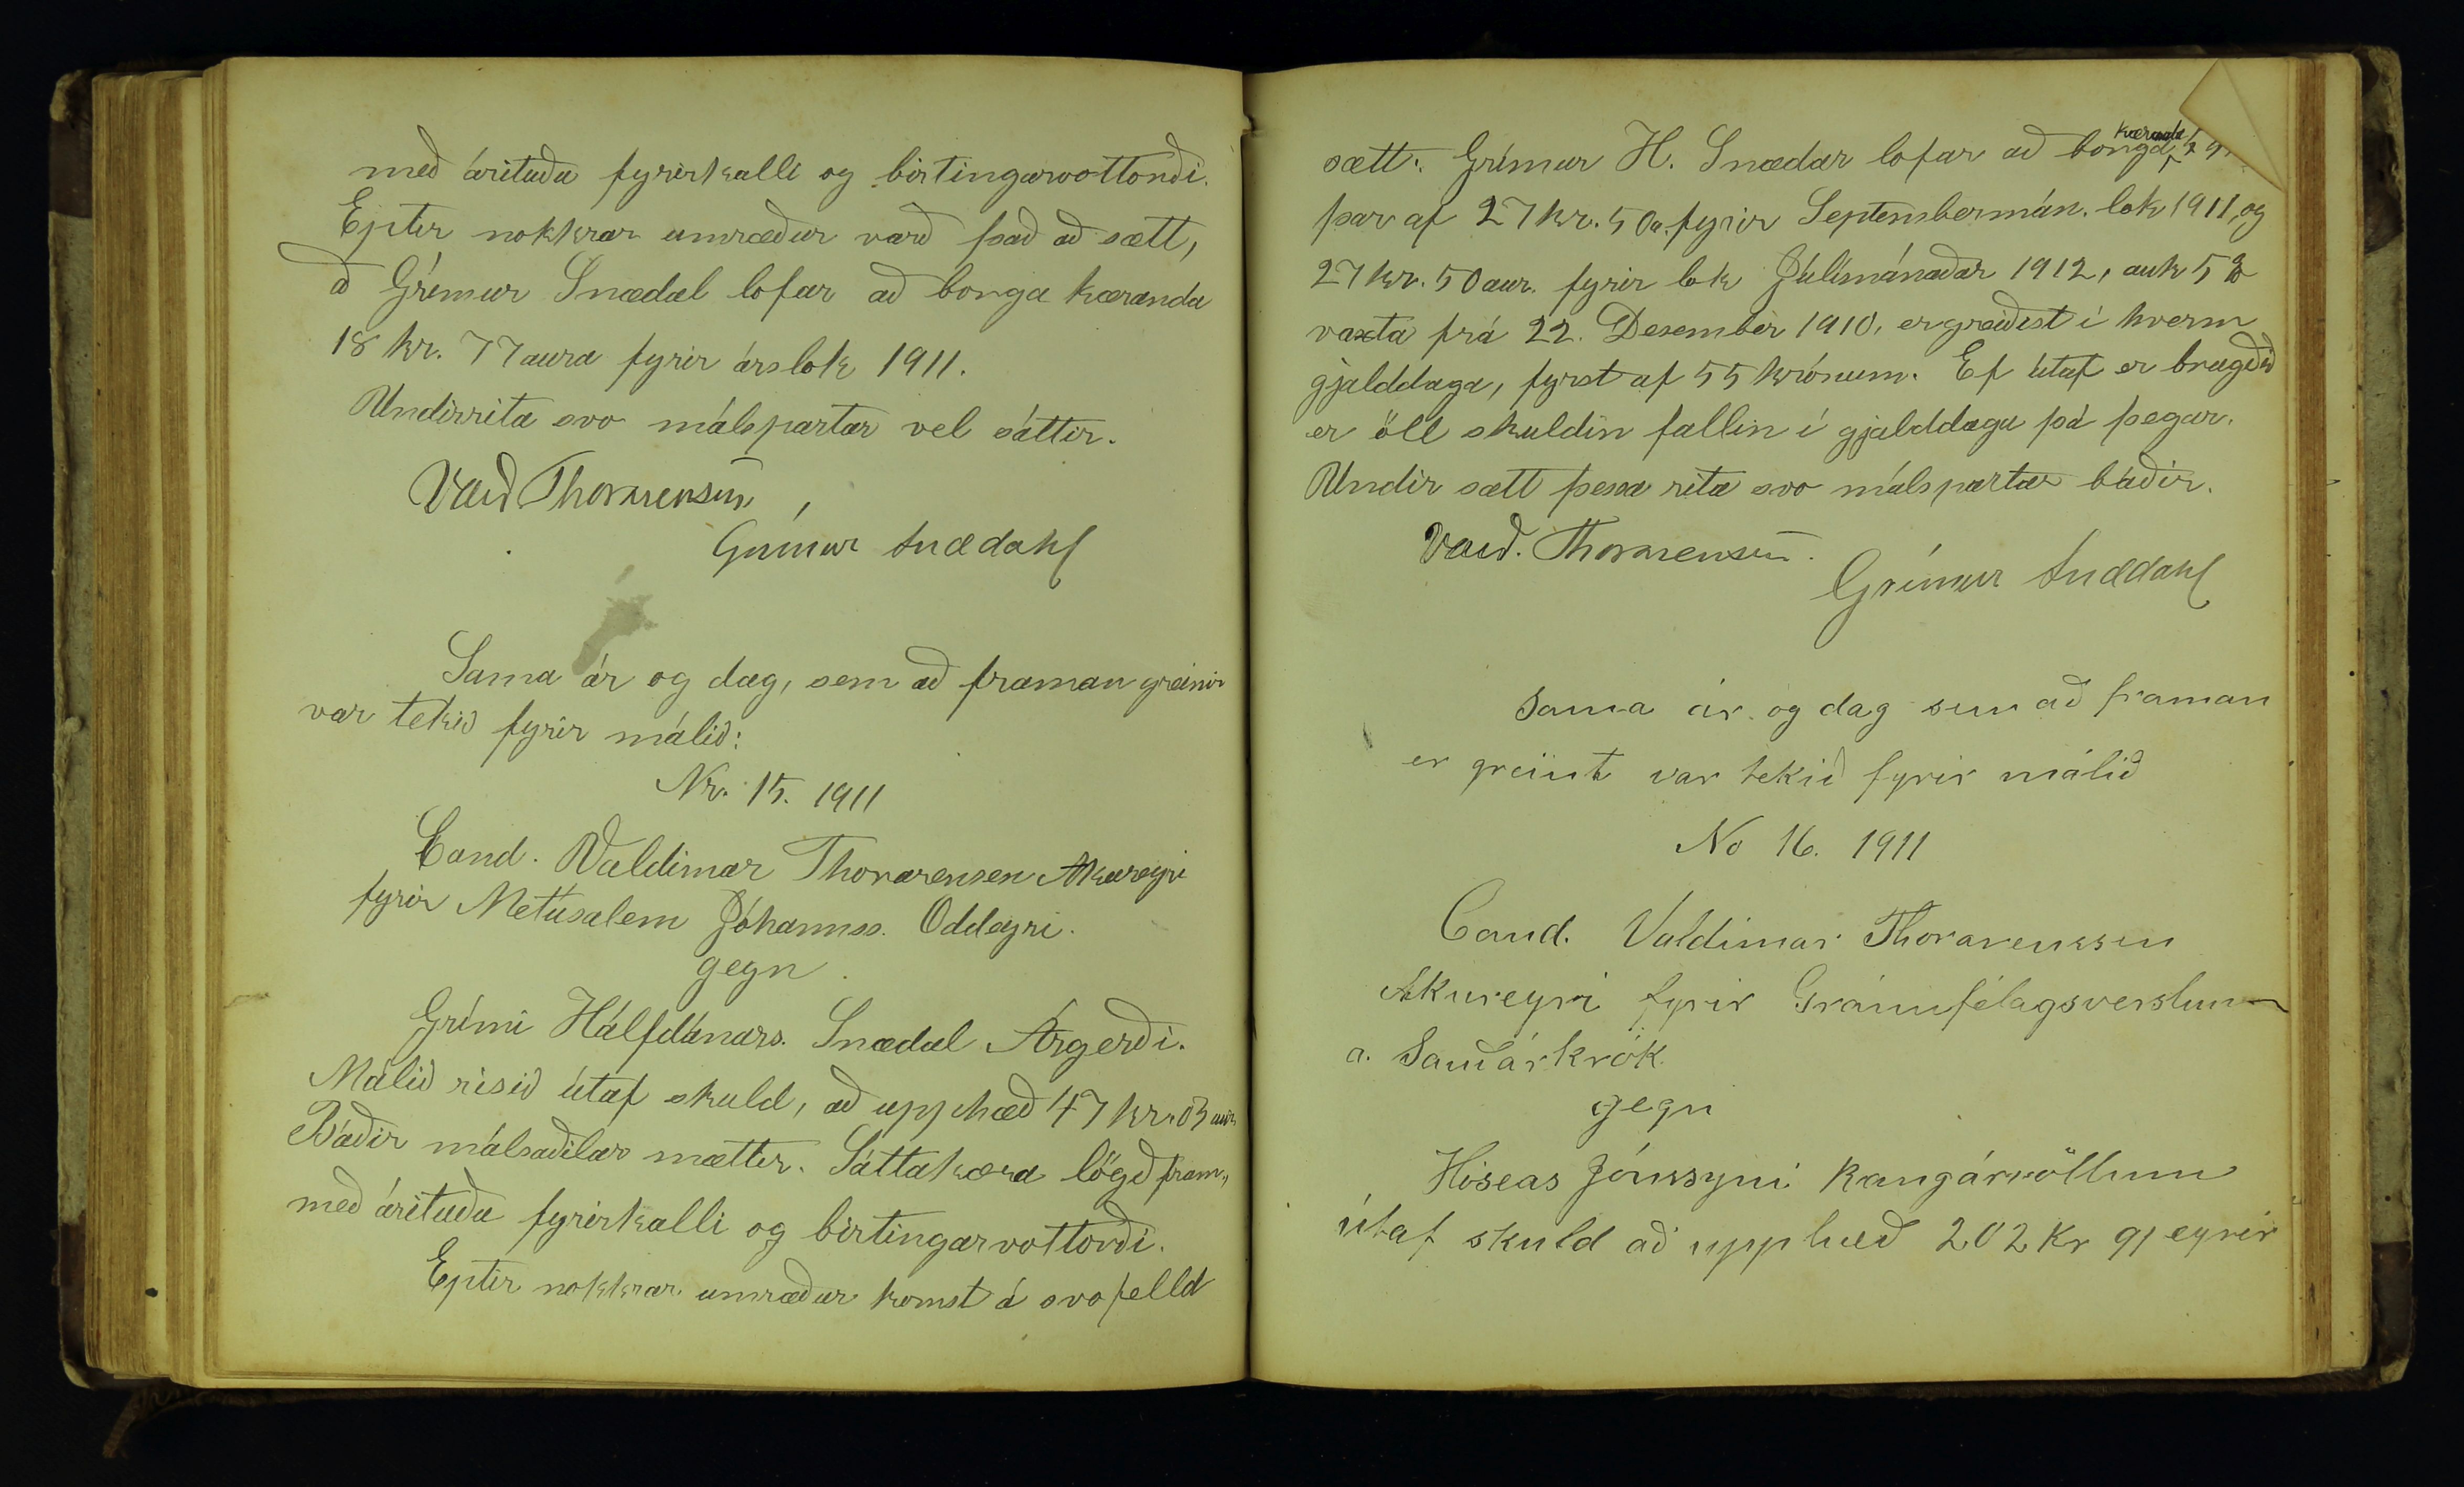 með árituðu fyrirkalli og birtingarvottorði.
Eptir nokkrar umræður varð það að sætt,
að Grímur Snædal lofar að borga kæranda
18 kr. 77 aura fyrir árslok 1911.
Undirrita svo málspartar vel sáttir.
Vald Thorarensen,
Grímur Snædahl
Sama ár og dag, sem að framan greinir
var tekið fyrir málið:
Nr. 15. 1911
Cand. Valdimar Thorarensen Akureyri
fyrir Metúsalem Jóhannss. Oddeyri.
gegn
Grími Hálfdánars. Snædal Árgerði.
Málið risið útaf skuld, að upphæð 47 kr. 03 aur.
Báðir málsaðilar mættir. Sáttakæra lögð fram,
með árituðu fyrirkalli og birtingarvottorði.
Eptir nokkrar umræður komst á svofelld
sætt: Grímur H. Snædal lofar að borga kæranda
þar af 27 kr. 50 a. fyrir Septembermán. lok 1911, og
27 kr. 50 aur. fyrir lok Júlímánaðar 1912, auk 5 %
vaxta frá 22. Desember 1910, er greiðist í hverm
gjalddaga, fyrst af 55 krónum. Ef útaf er brugðið
er öll skuldin fallin í gjalddaga þá þegar.
Undir sætt þessa rita svo málspartar báðir.
Vald. Thorarensen.
Grímur Snædahl
Sama ár og dag sem að framan
er greint var tekið fyrir málið
No 16. 1911
Cand. Valdimar Thorarenssen
Akureyri fyrir Gránufélagsverslun
a. Sauðárkrók.
gegn
Hóseas Jónssyni Rangárvöllum
útaf skuld að upphæð 202 kr 91 eyrir